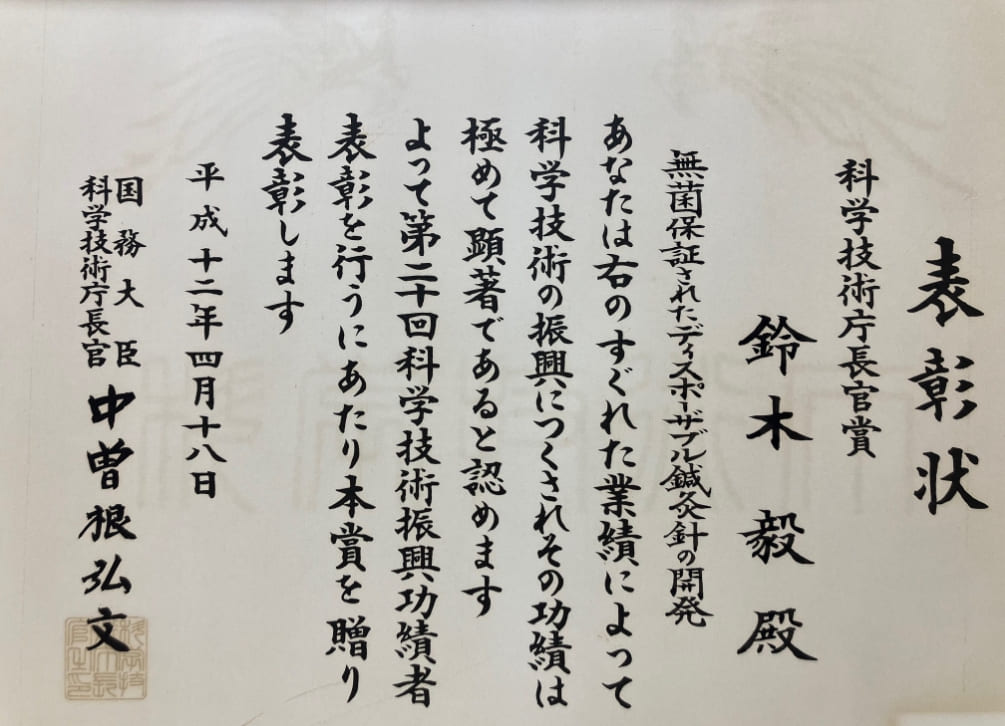 表彰状
科学技術庁長官賞
鈴木毅殿
無菌保証されたディスポーザブル鍼灸針の開発
あなたは右のすぐれた業績によって
科学技術の振興につくされその功績は
極めて顕著であると認めます
よって第二十回科学技術振興功績者
表彰を行うにあたり本賞を贈り
表彰します
平成十二年四月十八日
国務大臣
科学技術庁長官
中曽根弘文